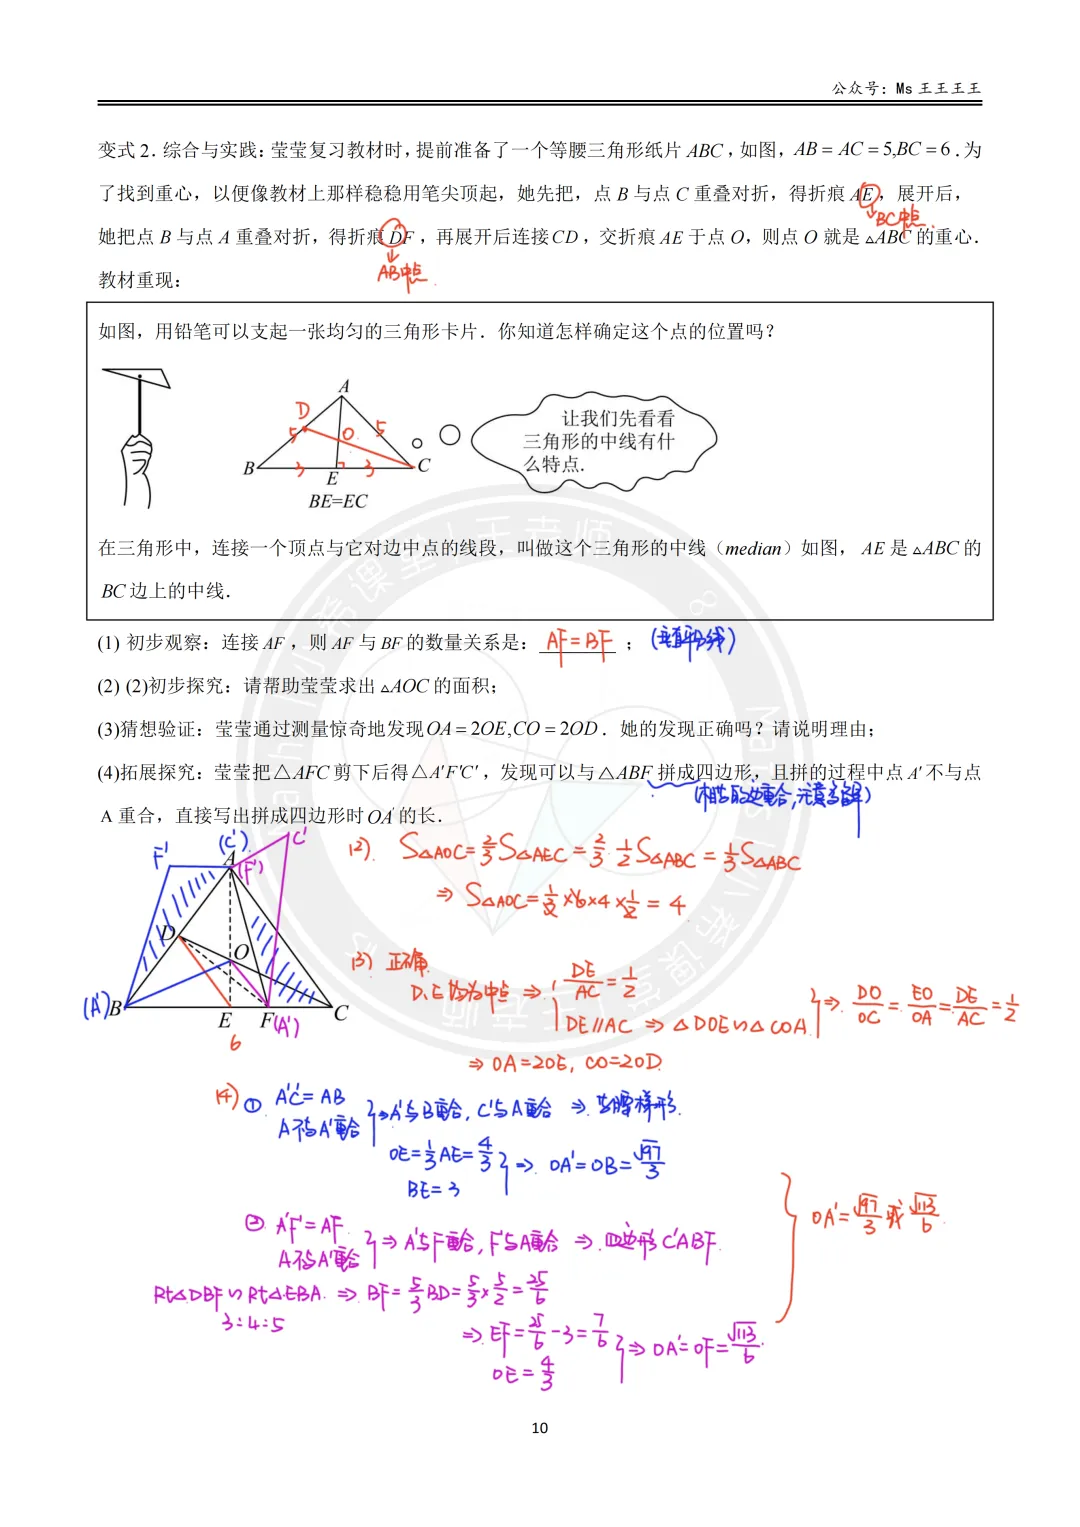 公众号：Ms 王王王王
变式 2．综合与实践：莹莹复习教材时，提前准备了一个等腰三角形纸片 ABC，如图，AB = AC = 5,BC = 6．为
了找到重心，以便像教材上那样稳稳用笔尖顶起，她先把，点 B 与点 C 重叠对折，得折痕 AE，展开后，
BC中点.
她把点 B 与点 A 重叠对折，得折痕 DF，再展开后连接CD，交折痕 AE 于点 O，则点 O 就是 △ABC 的重心．
AB中点.
教材重现：
如图，用铅笔可以支起一张均匀的三角形卡片．你知道怎样确定这个点的位置吗？
A
D
5
O
5
B
3
E
3
C
BE=EC
让我们先看看
三角形的中线有什
么特点.
在三角形中，连接一个顶点与它对边中点的线段，叫做这个三角形的中线（median）如图，AE 是 △ABC 的
BC 边上的中线．
(1) 初步观察：连接 AF，则 AF 与 BF 的数量关系是：AF=BF；(垂直平分线)
(2) (2)初步探究：请帮助莹莹求出 △AOC 的面积；
(3)猜想验证：莹莹通过测量惊奇地发现OA = 2OE,CO = 2OD．她的发现正确吗？请说明理由；
(4)拓展探究：莹莹把△AFC 剪下后得△A′F′C′，发现可以与△ABF 拼成四边形，且拼的过程中点 A′ 不与点
A 重合，直接写出拼成四边形时OA′ 的长．
F' (C') A (F') C'
D O
(A')B E F(A') C
6
(2). S△AOC=2/3S△AEC=2/3·1/2S△ABC=1/3S△ABC
⇒ S△AOC=1/3×6×4×1/2=4
(3) 正确.
D、E均为中点 ⇒ { DE/AC=1/2
DE∥AC ⇒ △DOE∽△COA } ⇒ DO/OC=EO/OA=DE/AC=1/2
⇒ OA=2OE, CO=2OD.
(4) ① A'C'=AB
A不与A'重合 } ⇒A'与B重合, C'与A重合 ⇒ 等腰梯形.
OE=1/3AE=4/3
BE=3 } ⇒ OA'=OB=√97/3
② A'F'=AF.
A不与A'重合 } ⇒A'与F重合, F'与A重合 ⇒ 四边形C'ABF.
Rt△DBF∽Rt△EBA. ⇒ BF=5/3BD=5/3×5/2=25/6
3:4:5
⇒ EF=25/6-3=7/6
OE=4/3 } ⇒ OA'=OF=√113/6
OA'=√97/3或√113/6
10